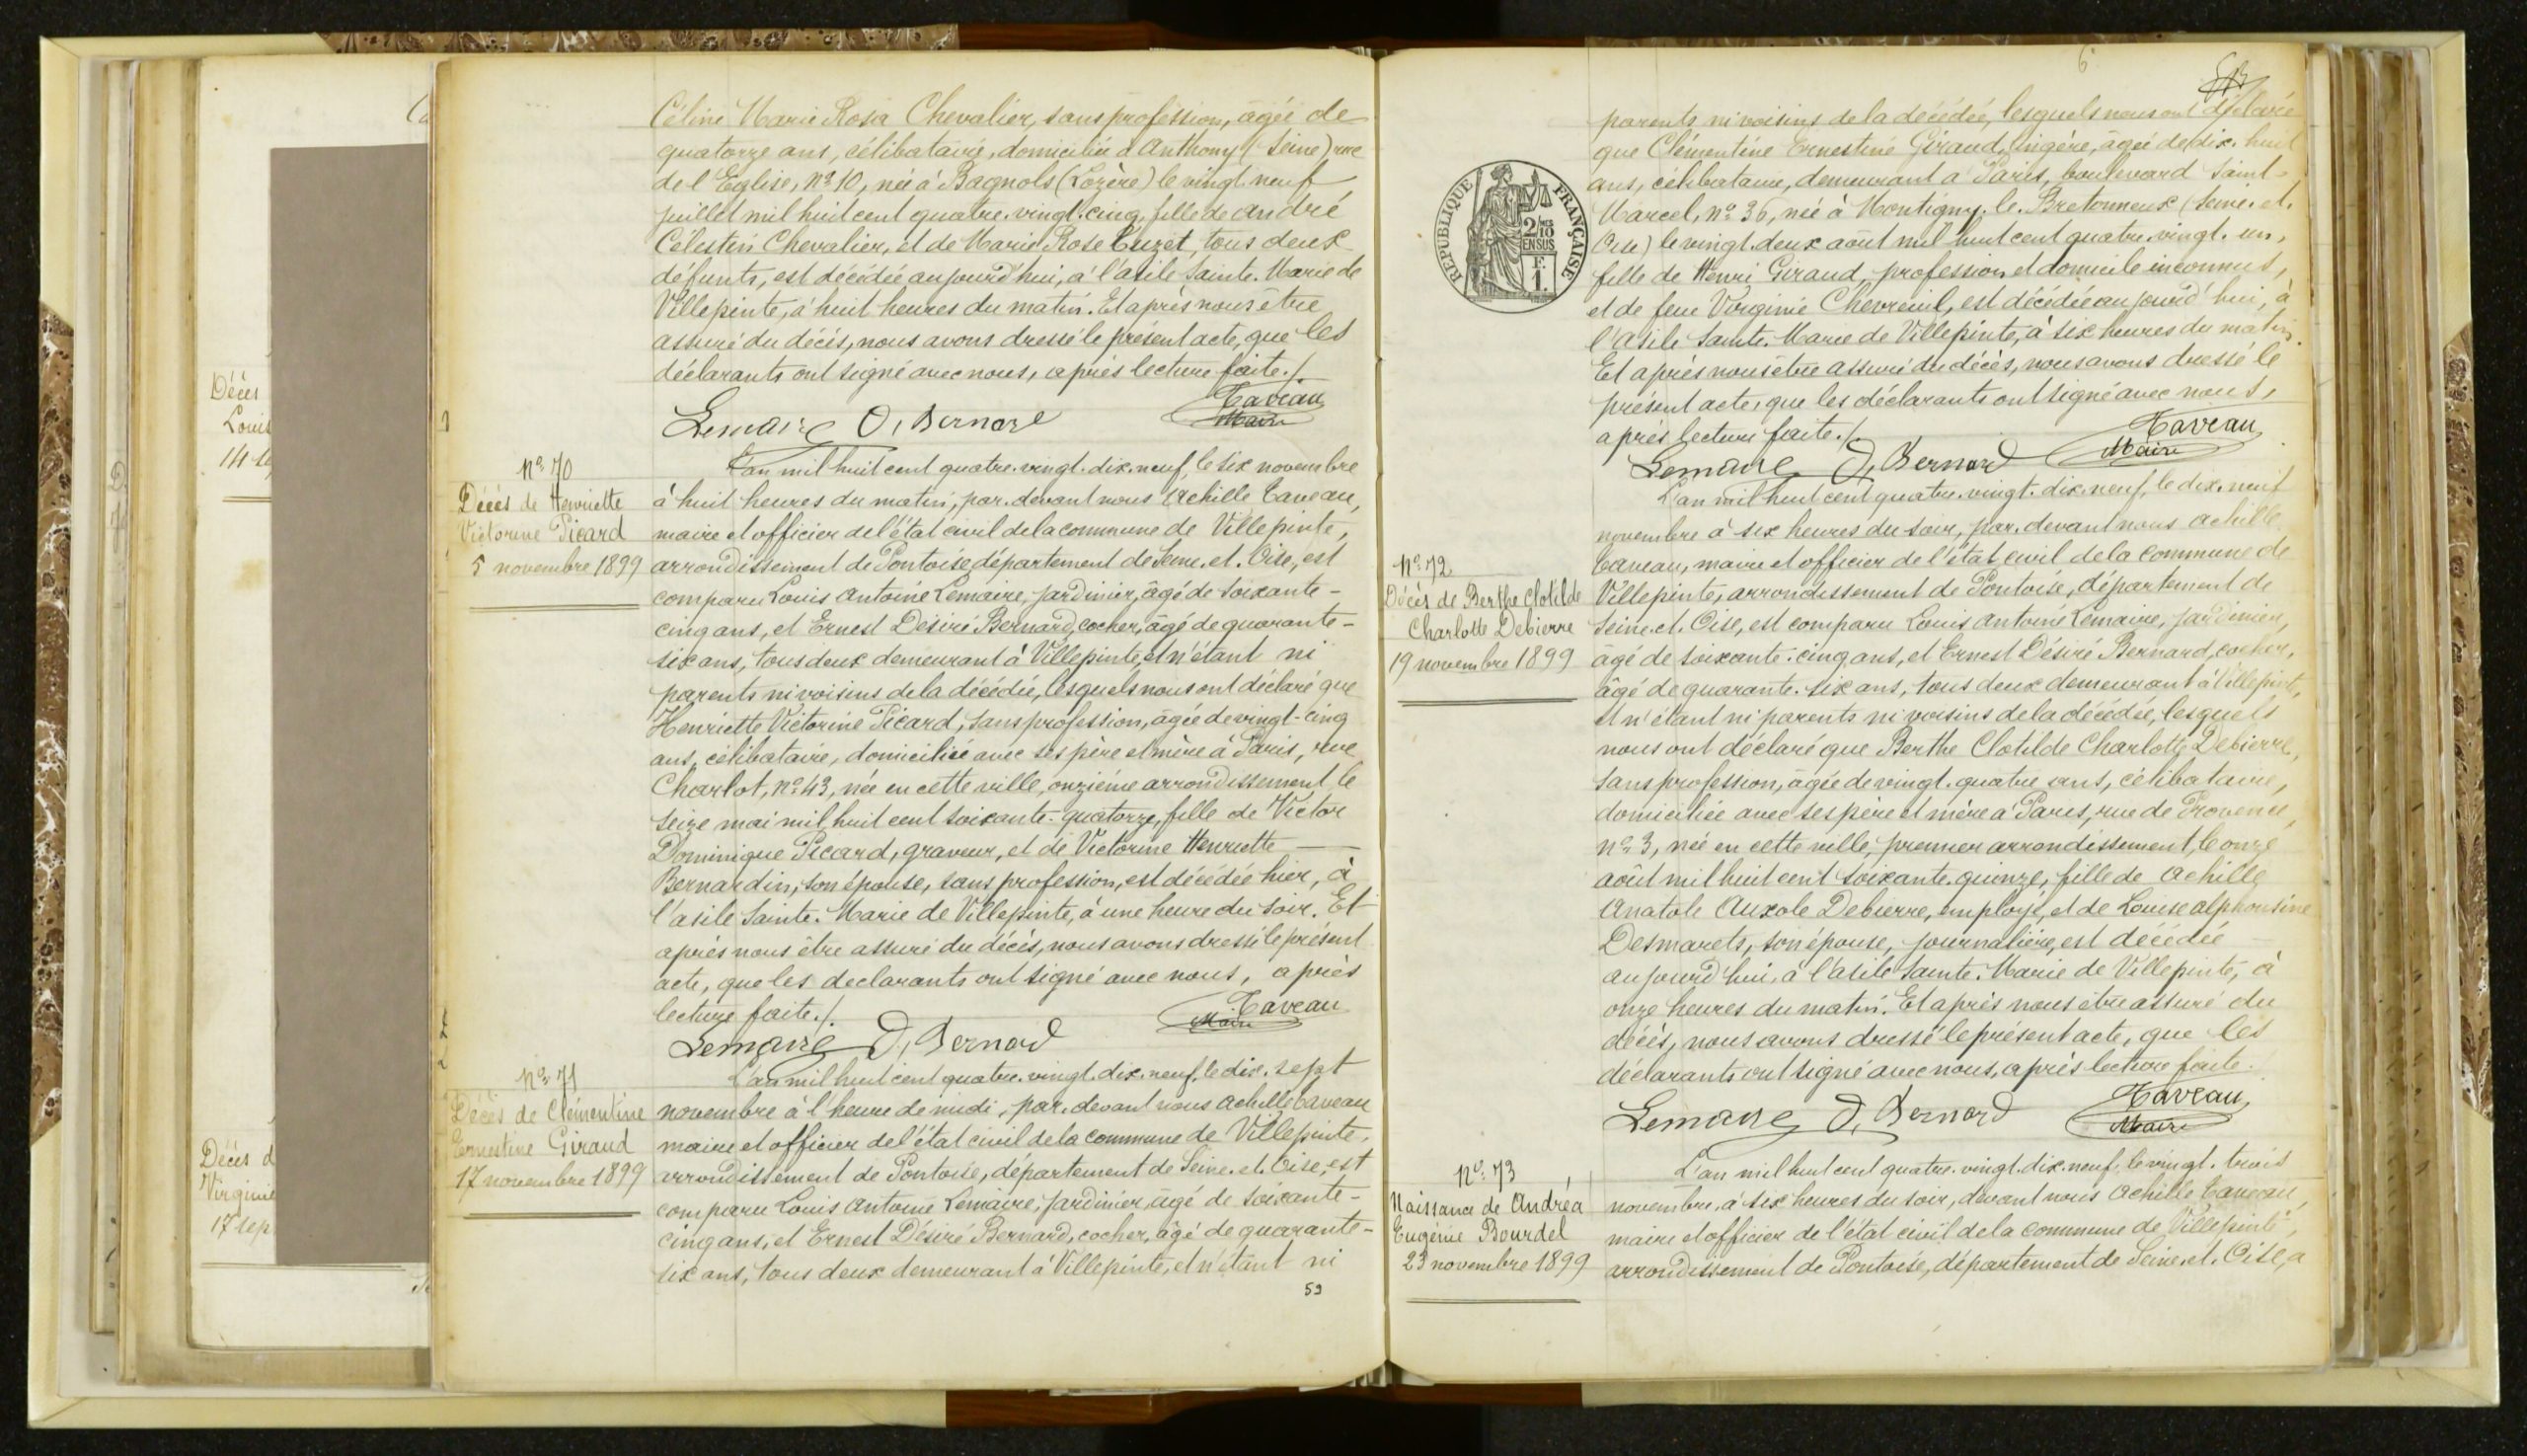 Décès
Louis
Décès d
Virginie
17 sep
Céline Marie Rosa Chevalier, sans profession, âgée de
quatorze ans, célibataire, domiciliée à Anthony (Seine) rue
de l'Eglise, Nº 10, née à Bagnols (Lozère) le vingt-neuf
juillet mil huit cent quatre-vingt-cinq, fille de André
Célestin Chevalier, et de Marie Rose Cuzet, tous deux
défunts, est décédée aujourd'hui, à l'asile Sainte-Marie de
Villepinte, à huit heures du matin. Et après nous être
assuré du décès, nous avons dressé le présent acte, que les
déclarants ont signé avec nous, après lecture faite./.
Lemaire D, Bernard Taveau
Maire
Nº 70
Décès de Henriette
Victorine Picard
5 novembre 1899
L'an mil huit cent quatre-vingt-dix-neuf, le six novembre
à huit heures du matin, par-devant nous Achille Taveau,
maire et officier de l'état civil de la commune de Villepinte,
arrondissement de Pontoise département de Seine-et-Oise, est
comparu Louis Antoine Lemaire, jardinier, âgé de soixante-
cinq ans, et Ernest Désiré Bernard, cocher, âgé de quarante-
six ans, tous deux demeurant à Villepinte, et n'étant ni
parents ni voisins de la décédée, lesquels nous ont déclaré que
Henriette Victorine Picard, sans profession, âgée de vingt-cinq
ans, célibataire, domiciliée avec ses père et mère à Paris, rue
Charlot, nº 43, née en cette ville, onzième arrondissement le
seize mai mil huit cent soixante-quatorze, fille de Victor
Dominique Picard, graveur, et de Victorine Henriette
Bernardin, son épouse, sans profession, est décédée hier, à
l'asile Sainte-Marie de Villepinte, à une heure du soir. Et
après nous être assuré du décès, nous avons dressé le présent
acte, que les déclarants ont signé avec nous, après
lecture faite./.
Lemaire D, Bernard Taveau
Maire
Nº 71
Décès de Clémentine
Ernestine Giraud
17 novembre 1899
L'an mil huit cent quatre-vingt-dix-neuf, le dix-sept
novembre à l'heure de midi, par-devant nous Achille Taveau
maire et officier de l'état civil de la commune de Villepinte,
arrondissement de Pontoise, département de Seine-et-Oise, est
comparu Louis Antoine Lemaire, jardinier, âgé de soixante-
cinq ans, et Ernest Désiré Bernard, cocher, âgé de quarante-
six ans, tous deux demeurant à Villepinte, et n'étant ni
59
parents ni voisins de la décédée, lesquels nous ont déclaré
que Clémentine Ernestine Giraud, lingère, âgée de dix-huit
ans, célibataire, demeurant à Paris, boulevard Saint-
Marcel, nº 36, née à Montigny-le-Bretonneux (Seine-et-
Oise) le vingt-deux août mil huit cent quatre-vingt-un,
fille de Henri Giraud, profession et domicile inconnus,
et de feue Virginie Chevreuil, est décédée aujourd'hui, à
l'asile Sainte-Marie de Villepinte, à six heures du matin.
Et après nous être assuré du décès, nous avons dressé le
présent acte, que les déclarants ont signé avec nous,
après lecture faite./.
Lemaire D, Bernard Taveau
Maire
RÉPUBLIQUE FRANÇAISE
2/10 EN SUS
F. 1.
Nº 72
Décès de Berthe Clotilde
Charlotte Debierre
19 novembre 1899
L'an mil huit cent quatre-vingt-dix-neuf, le dix-neuf
novembre à six heures du soir, par-devant nous Achille
Taveau, maire et officier de l'état civil de la commune de
Villepinte, arrondissement de Pontoise, département de
Seine-et-Oise, est comparu Louis Antoine Lemaire, jardinier,
âgé de soixante-cinq ans, et Ernest Désiré Bernard, cocher,
âgé de quarante-six ans, tous deux demeurant à Villepinte,
et n'étant ni parents ni voisins de la décédée, lesquels
nous ont déclaré que Berthe Clotilde Charlotte Debierre,
sans profession, âgée de vingt-quatre ans, célibataire,
domiciliée avec ses père et mère à Paris, rue de Provence,
nº 3, née en cette ville, premier arrondissement, le onze
août mil huit cent soixante-quinze, fille de Achille
Anatole Auxole Debierre, employé, et de Louise Alphonsine
Desmarets, son épouse, journalière, est décédée
aujourd'hui, à l'asile Sainte-Marie de Villepinte, à
onze heures du matin. Et après nous être assuré du
décès, nous avons dressé le présent acte, que les
déclarants ont signé avec nous, après lecture faite.
Lemaire D, Bernard Taveau
Maire
Nº 73
Naissance de Andréa
Eugénie Bourdel
23 novembre 1899
L'an mil huit cent quatre-vingt-dix-neuf, le vingt-trois
novembre, à six heures du soir, devant nous Achille Taveau,
maire et officier de l'état civil de la commune de Villepinte,
arrondissement de Pontoise, département de Seine-et-Oise, a